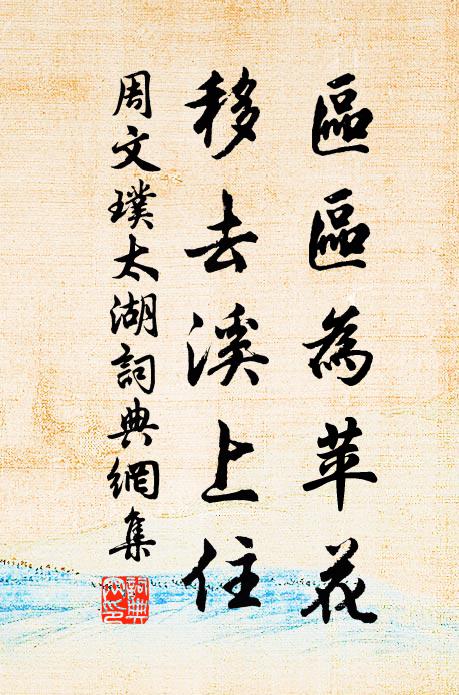 區區為苹花
移去溪上住
周文璞太湖詞典網集